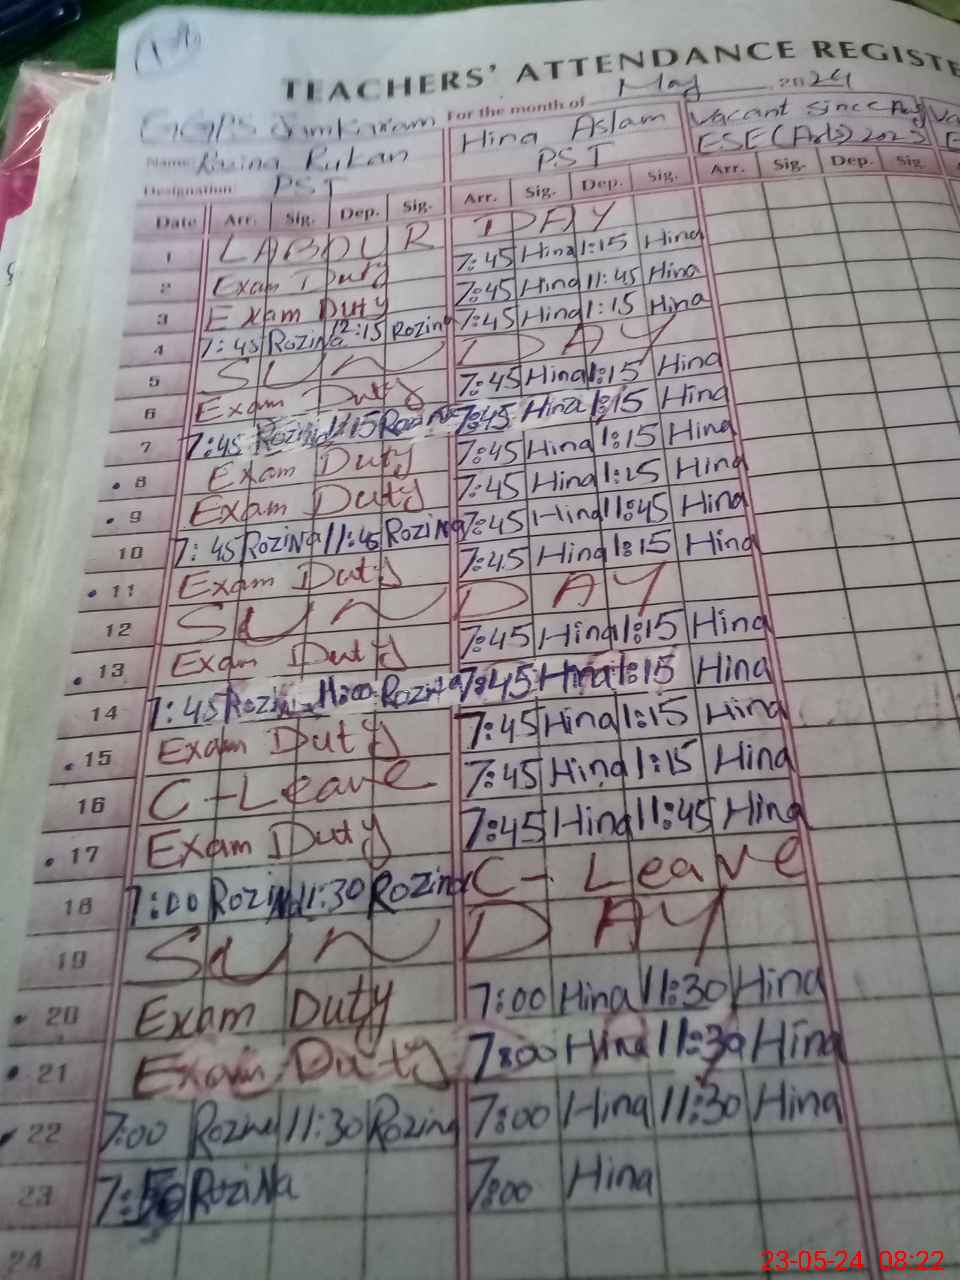 TEACHERS' ATTENDANCE REGISTE
For the month of May 2024
GGPS Jamkaram
Name Rozina Rukan Hina Aslam Vacant Since Aug
Designation PST PST ESE (Arts) 2023
Date Arr. Sig. Dep. Sig. Arr. Sig. Dep. Sig. Arr. Sig. Dep. Sig.
1 LABOUR DAY
2 Exam Duty 7:45 Hina 1:15 Hina
3 Exam Duty 7:45 Hina 11:45 Hina
4 7:45 Rozina 12:15 Rozina 7:45 Hina 1:15 Hina
5 SUNDAY
6 Exam Duty 7:45 Hina 1:15 Hina
7 7:45 Rozina 1:15 Rozina 7:45 Hina 1:15 Hina
8 Exam Duty 7:45 Hina 1:15 Hina
9 Exam Duty 7:45 Hina 1:15 Hina
10 7:45 Rozina 11:45 Rozina 7:45 Hina 11:45 Hina
11 Exam Duty 7:45 Hina 1:15 Hina
12 SUNDAY
13 Exam Duty 7:45 Hina 1:15 Hina
14 7:45 Rozina 11:00 Rozina 7:45 Hina 1:15 Hina
15 Exam Duty 7:45 Hina 1:15 Hina
16 C-Leave 7:45 Hina 1:15 Hina
17 Exam Duty 7:45 Hina 11:45 Hina
18 7:00 Rozina 11:30 Rozina C-Leave
19 SUNDAY
20 Exam Duty 7:00 Hina 11:30 Hina
21 Exam Duty 7:00 Hina 11:30 Hina
22 7:00 Rozina 11:30 Rozina 7:00 Hina 11:30 Hina
23 Rozina 7:00 Hina
24
23-05-24 08:22